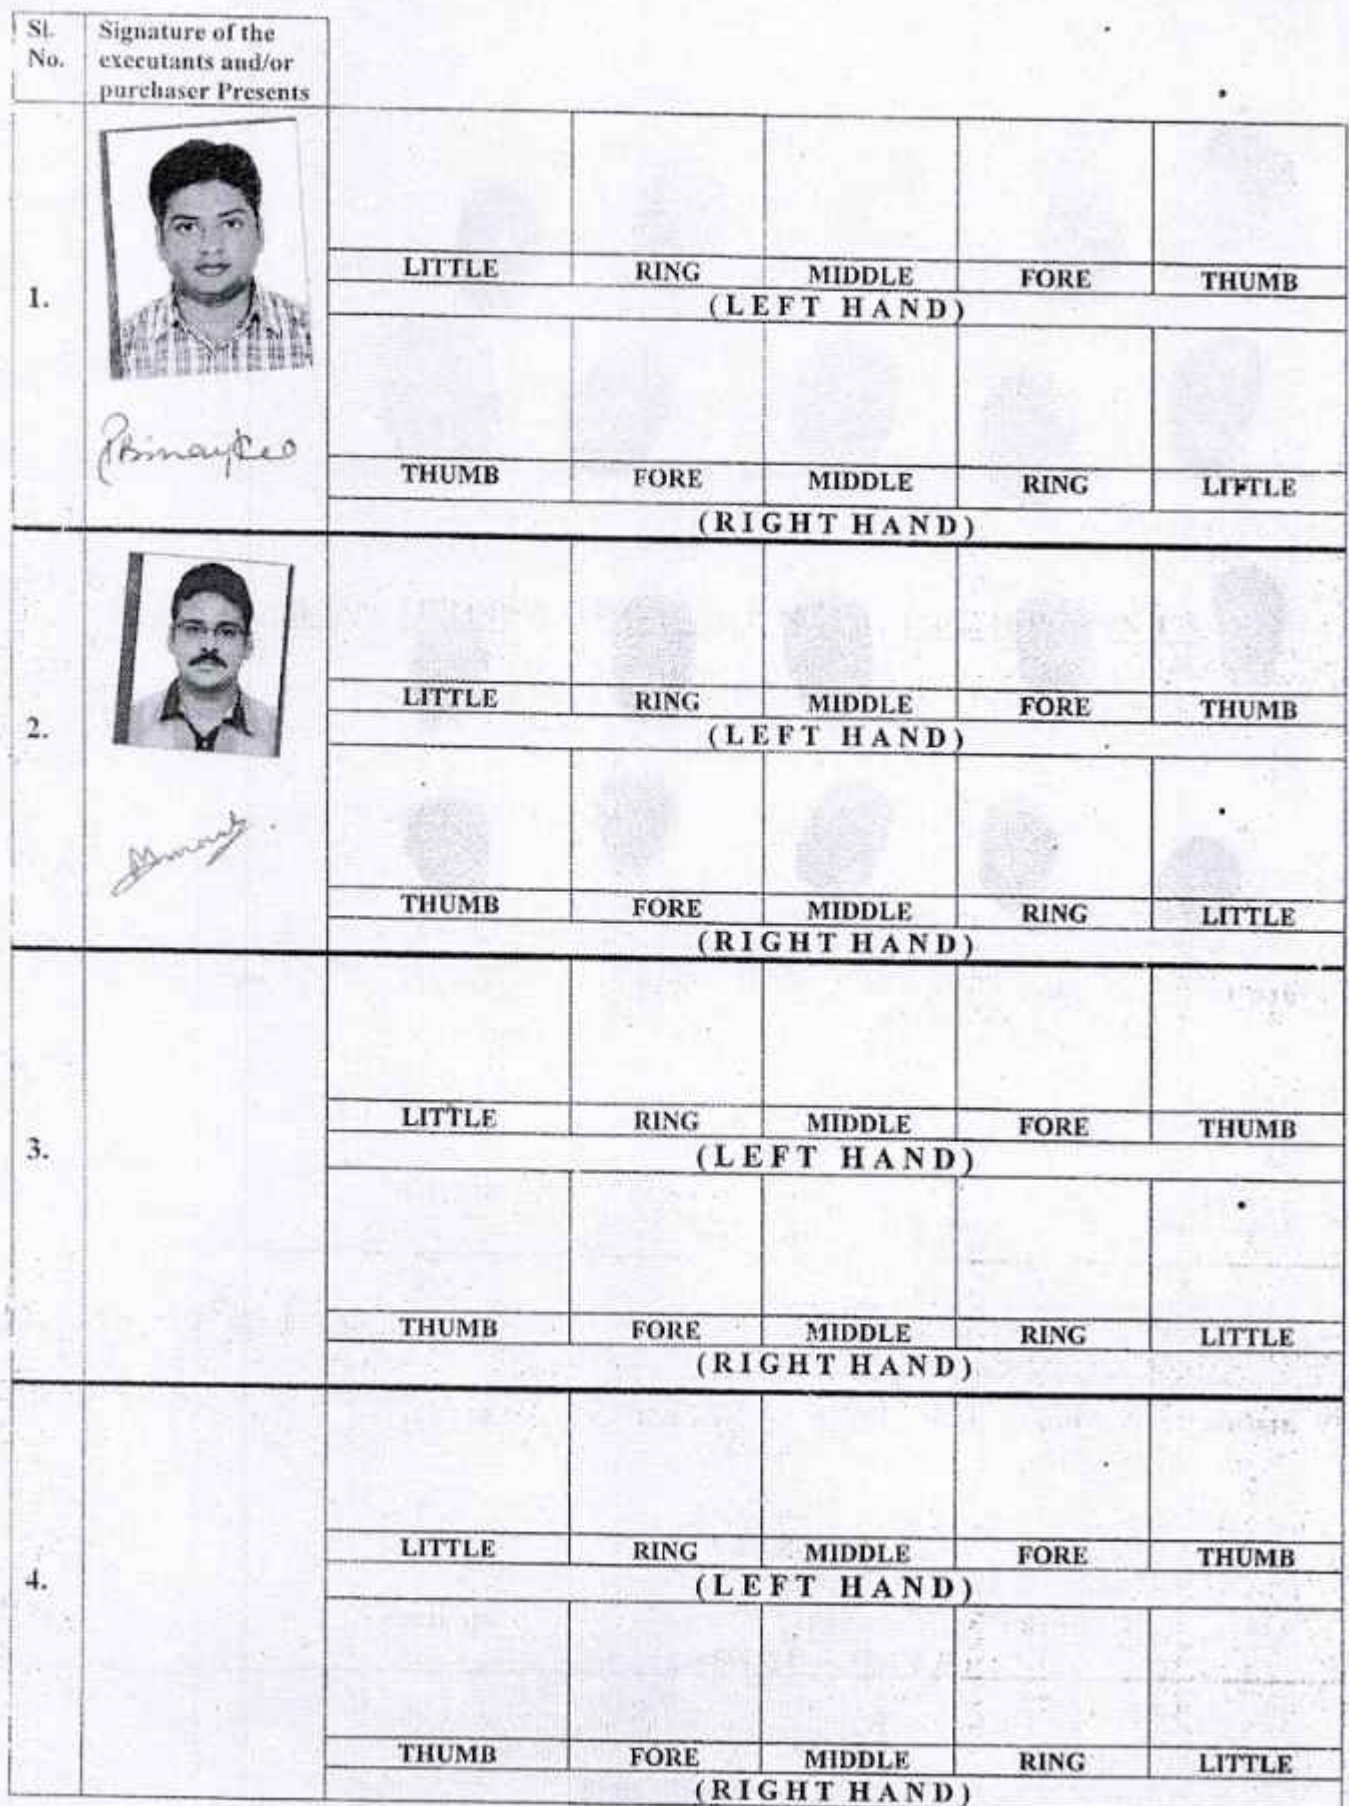 Sl. No.
Signature of the executants and/or purchaser Presents
1.
LITTLE RING MIDDLE FORE THUMB
(LEFT HAND)
THUMB FORE MIDDLE RING LITTLE
(RIGHT HAND)
2.
LITTLE RING MIDDLE FORE THUMB
(LEFT HAND)
THUMB FORE MIDDLE RING LITTLE
(RIGHT HAND)
3.
LITTLE RING MIDDLE FORE THUMB
(LEFT HAND)
THUMB FORE MIDDLE RING LITTLE
(RIGHT HAND)
4.
LITTLE RING MIDDLE FORE THUMB
(LEFT HAND)
THUMB FORE MIDDLE RING LITTLE
(RIGHT HAND)